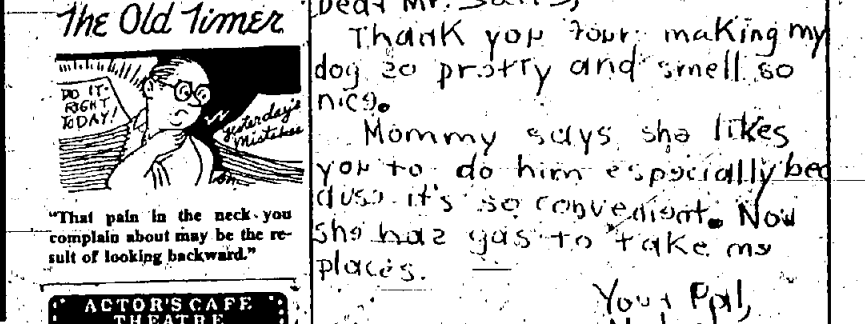 The Old Timer
DO IT
RIGHT
TODAY!
yesterday's
mistakes
"That pain in the neck you
complain about may be the re-
sult of looking backward."
ACTOR'S CAFE
THEATRE
Dear Mr.
Thank you four making my
dog so pretty and smell so
nice.
Mommy says she likes
you to do him especially bec
ause it's so convenient. Now
she has gas to take me
places.
Your Pal,